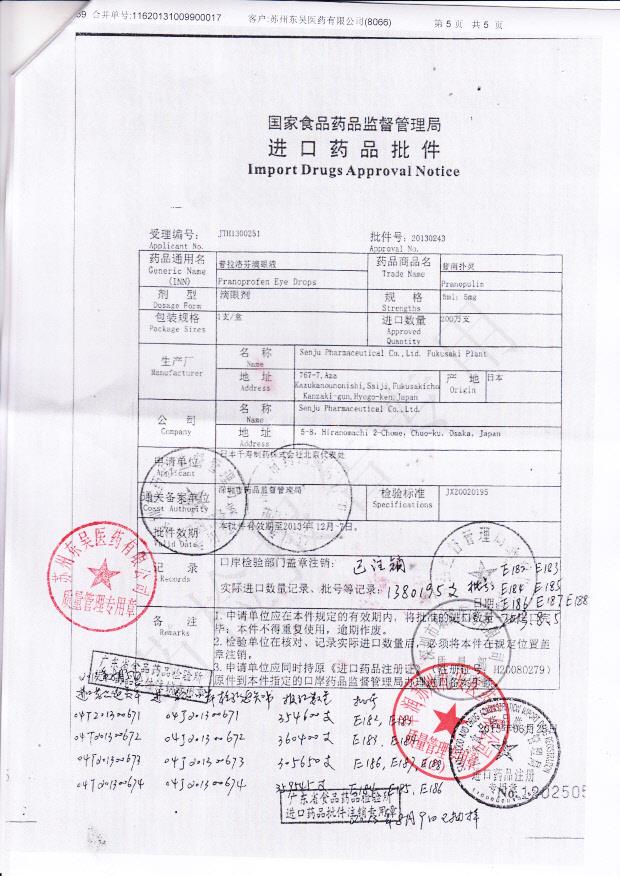 合并单号:11620131009900017 客户:苏州东吴医药有限公司(8066) 第 5 页 共 5 页
国家食品药品监督管理局
进口药品批件
Import Drugs Approval Notice
受理编号: JTH1300251 批件号: 20130243
Applicant No. Approval No.
药品通用名 普拉洛芬滴眼液 药品商品名 普南扑灵
Generic Name (INN) Pranoprofen Eye Drops Trade Name Pranopulin
剂 型 滴眼剂 规 格 5ml: 5mg
Dosage Form Strengths
包装规格 1支/盒 进口数量 200万支
Package Sizes Approved Quantity
生产厂 名 称 Senju Pharmaceutical Co.,Ltd. Fukusaki Plant
Manufacturer Name
地 址 767-7,Aza Kazukanounonishi,Saiji,Fukusakicho Kanzaki-gun,Hyogo-ken,Japan 产 地 日本
Address Origin
公 司 名 称 Senju Pharmaceutical Co.,Ltd.
Company Name
地 址 5-8, Hiranomachi 2-Chome, Chuo-ku, Osaka, Japan
Address
申请单位 日本千寿制药株式会社北京代表处
Applicant
通关备案单位 药品监督管理局 检验标准 JX20020195
Specifications
批件效期 本批件有效期至2013年12月7日。
Valid Date
记 录 口岸检验部门盖章注销: 已注销
Records 实际进口数量记录、批号等记录: 1380195支 批号: E182 E183
E184 E185
日期: E186 E187 E188
备 注 1. 申请单位应在本件规定的有效期内，将批准的进口数量
Remarks 毕；本件不得重复使用，逾期作废。
2. 检验单位在核对、记录实际进口数量后，必须将本件在规定位置盖
章注销。
3. 申请单位应同时持原《进口药品注册证》(注册证号H20080279)
原件到本件指定的口岸药品监督管理局办理进口备案手续。
苏州东吴医药有限公司
质量管理专用章
广东省食品药品检验所
04T201300671 04J201300671 354600支 E182, E183
04T201300672 04J201300672 360400支 E183, E184
04T201300673 04J201300673 305650支 E186, E187, E188
04T201300674 04J201300674 E185, E186
2013年06月25日
进口药品注册
专用章
广东省食品药品检验所
进口药品批件注销专用章